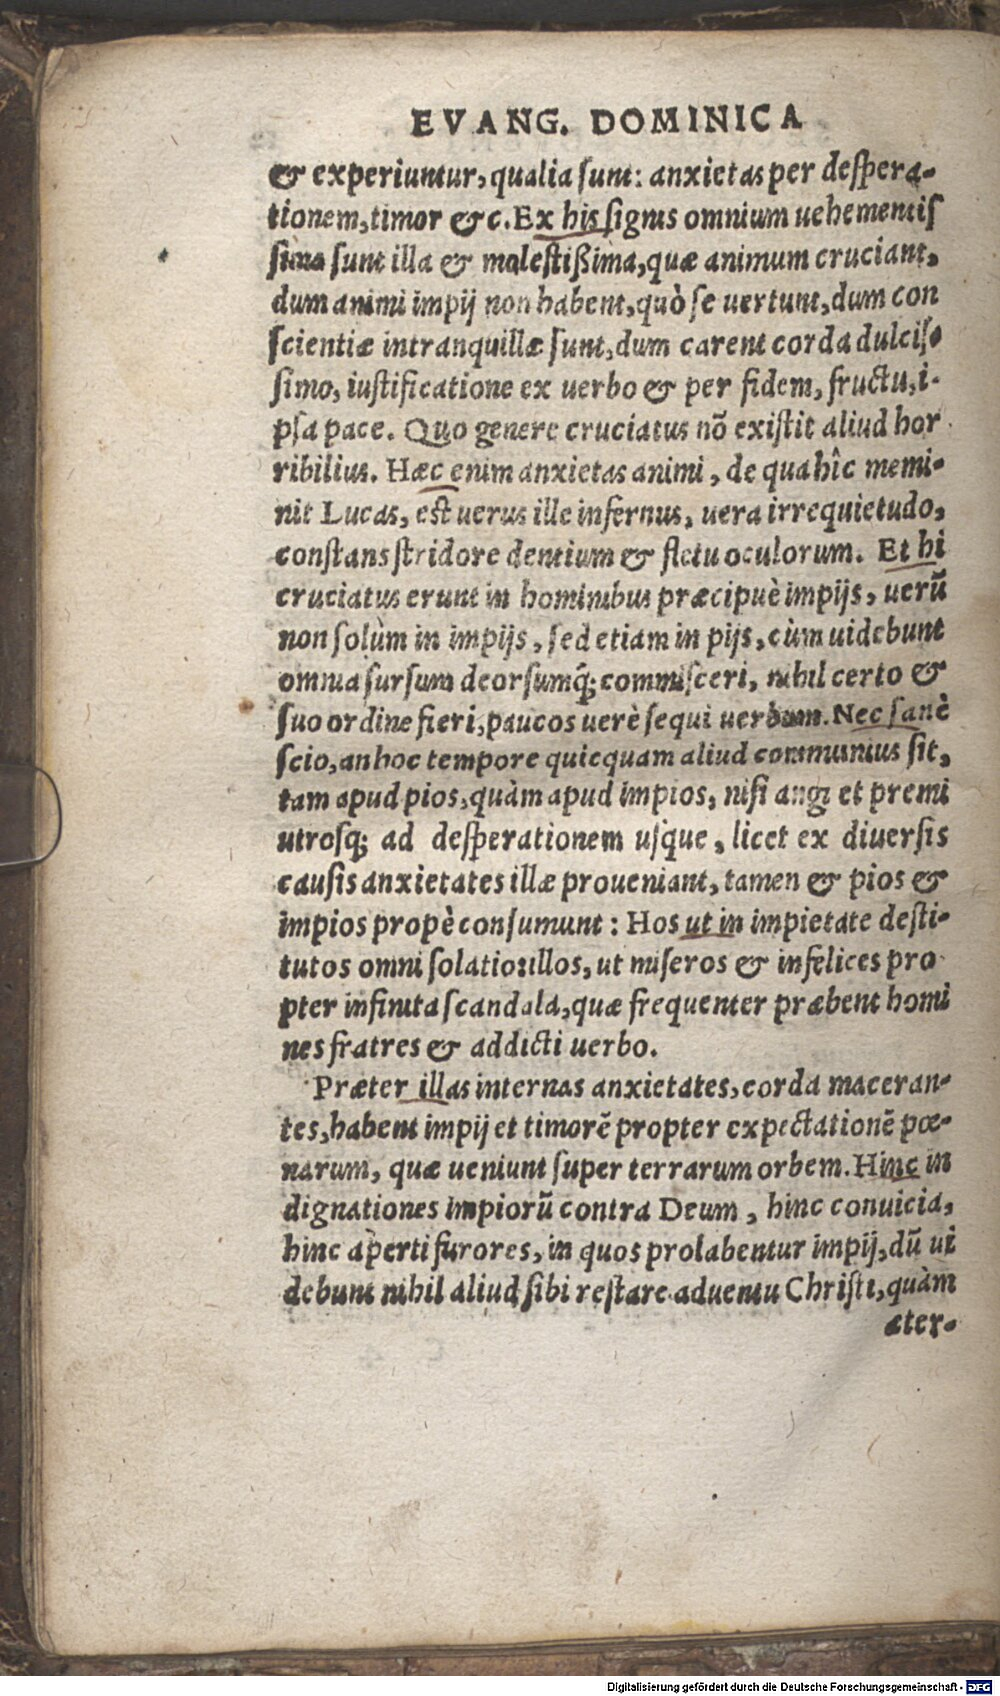 EVANG. DOMINICA
& experiuntur, qualia sunt: anxietas per despera-
tionem, timor &c. Ex his signis omnium uehementis
sima sunt illa & molestißima, quæ animum cruciant,
dum animi impij non habent, quò se uertunt, dum con
scientiæ intranquillæ sunt, dum carent corda dulcis-
simo, iustificatione ex uerbo & per fidem, fructu, i-
psa pace. Quo genere cruciatus nõ existit aliud hor
ribilius. Hæc enim anxietas animi, de qua hîc memi-
nit Lucas, est uerus ille infernus, uera irrequietudo,
constans stridore dentium & fletu oculorum. Et hi
cruciatus erunt in hominibus præcipuè impijs, uerũ
non solùm in impijs, sed etiam in pijs, cùm uidebunt
omnia sursum deorsumq; commisceri, nihil certo &
suo ordine fieri, paucos uerè sequi uerbum. Nec sanè
scio, an hoc tempore quicquam aliud communius sit,
tam apud pios, quàm apud impios, nisi angi et premi
utrosq; ad desperationem usque, licet ex diuersis
causis anxietates illæ proueniant, tamen & pios &
impios propè consumunt: Hos ut in impietate desti-
tutos omni solatio: illos, ut miseros & infelices pro
pter infinita scandala, quæ frequenter præbent homi
nes fratres & addicti uerbo.
Præter illas internas anxietates, corda maceran-
tes, habent impij et timorẽ propter expectationẽ pœ-
narum, quæ ueniunt super terrarum orbem. Hinc in
dignationes impiorũ contra Deum, hinc conuicia,
hinc aperti furores, in quos prolabentur impij, dũ ui
debunt nihil aliud sibi restare aduentu Christi, quàm
æter-
Digitalisierung gefördert durch die Deutsche Forschungsgemeinschaft - DFG